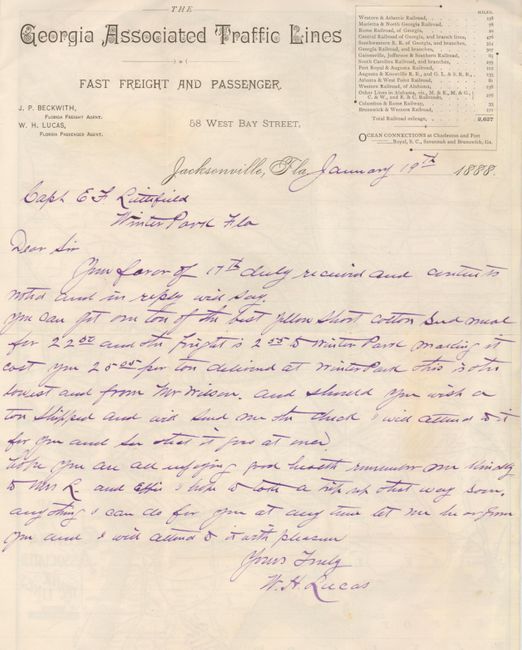 THE
Georgia Associated Traffic Lines
FAST FREIGHT AND PASSENGER.
J. P. BECKWITH,
FLORIDA FREIGHT AGENT.
W. H. LUCAS,
FLORIDA PASSENGER AGENT.
58 WEST BAY STREET,
MILES.
Western & Atlantic Railroad, 138
Marietta & North Georgia Railroad,
Rome Railroad, of Georgia, 20
Central Railroad of Georgia, and branch lines,
Southwestern R. R. of Georgia, and branches,
Georgia Railroad, and branches, 307
Gainesville, Jefferson & Southern Railroad,
South Carolina Railroad, and branches,
Port Royal & Augusta Railroad,
Augusta & Knoxville R. R., and G. L. & S. R. R.,
Atlanta & West Point Railroad,
Western Railroad, of Alabama,
Other Lines in Alabama, viz., M. & E., M. & G.,
C. & W., and E. & C. Railroads,
Columbus & Rome Railway,
Brunswick & Western Railroad,
Total Railroad mileage, 2,627
OCEAN CONNECTIONS at Charleston and Port
Royal, S. C., Savannah and Brunswick, Ga.
Jacksonville, Fla. January 19th 1888.
Capt E F Littlefield
Winter Park Fla
Dear Sir
Your favor of 17th duly received and contents
noted and in reply will say
you can get one ton of the best yellow short cotton seed meal
for 22 50 and the freight is 2 55 to Winter Park making it
cost you 25 05 per ton delivered at Winter Park this is the
lowest and from Mr Wilson. and should you wish a
ton shipped and will send me the check I will attend to it
for you and see that it goes at once
hope you are all enjoying good health remember me kindly
to Mrs L. and Effie I hope to take a trip up that way soon,
anything I can do for you at any time let me hear from
you and I will attend to it with pleasure
Yours Truly
W. H. Lucas